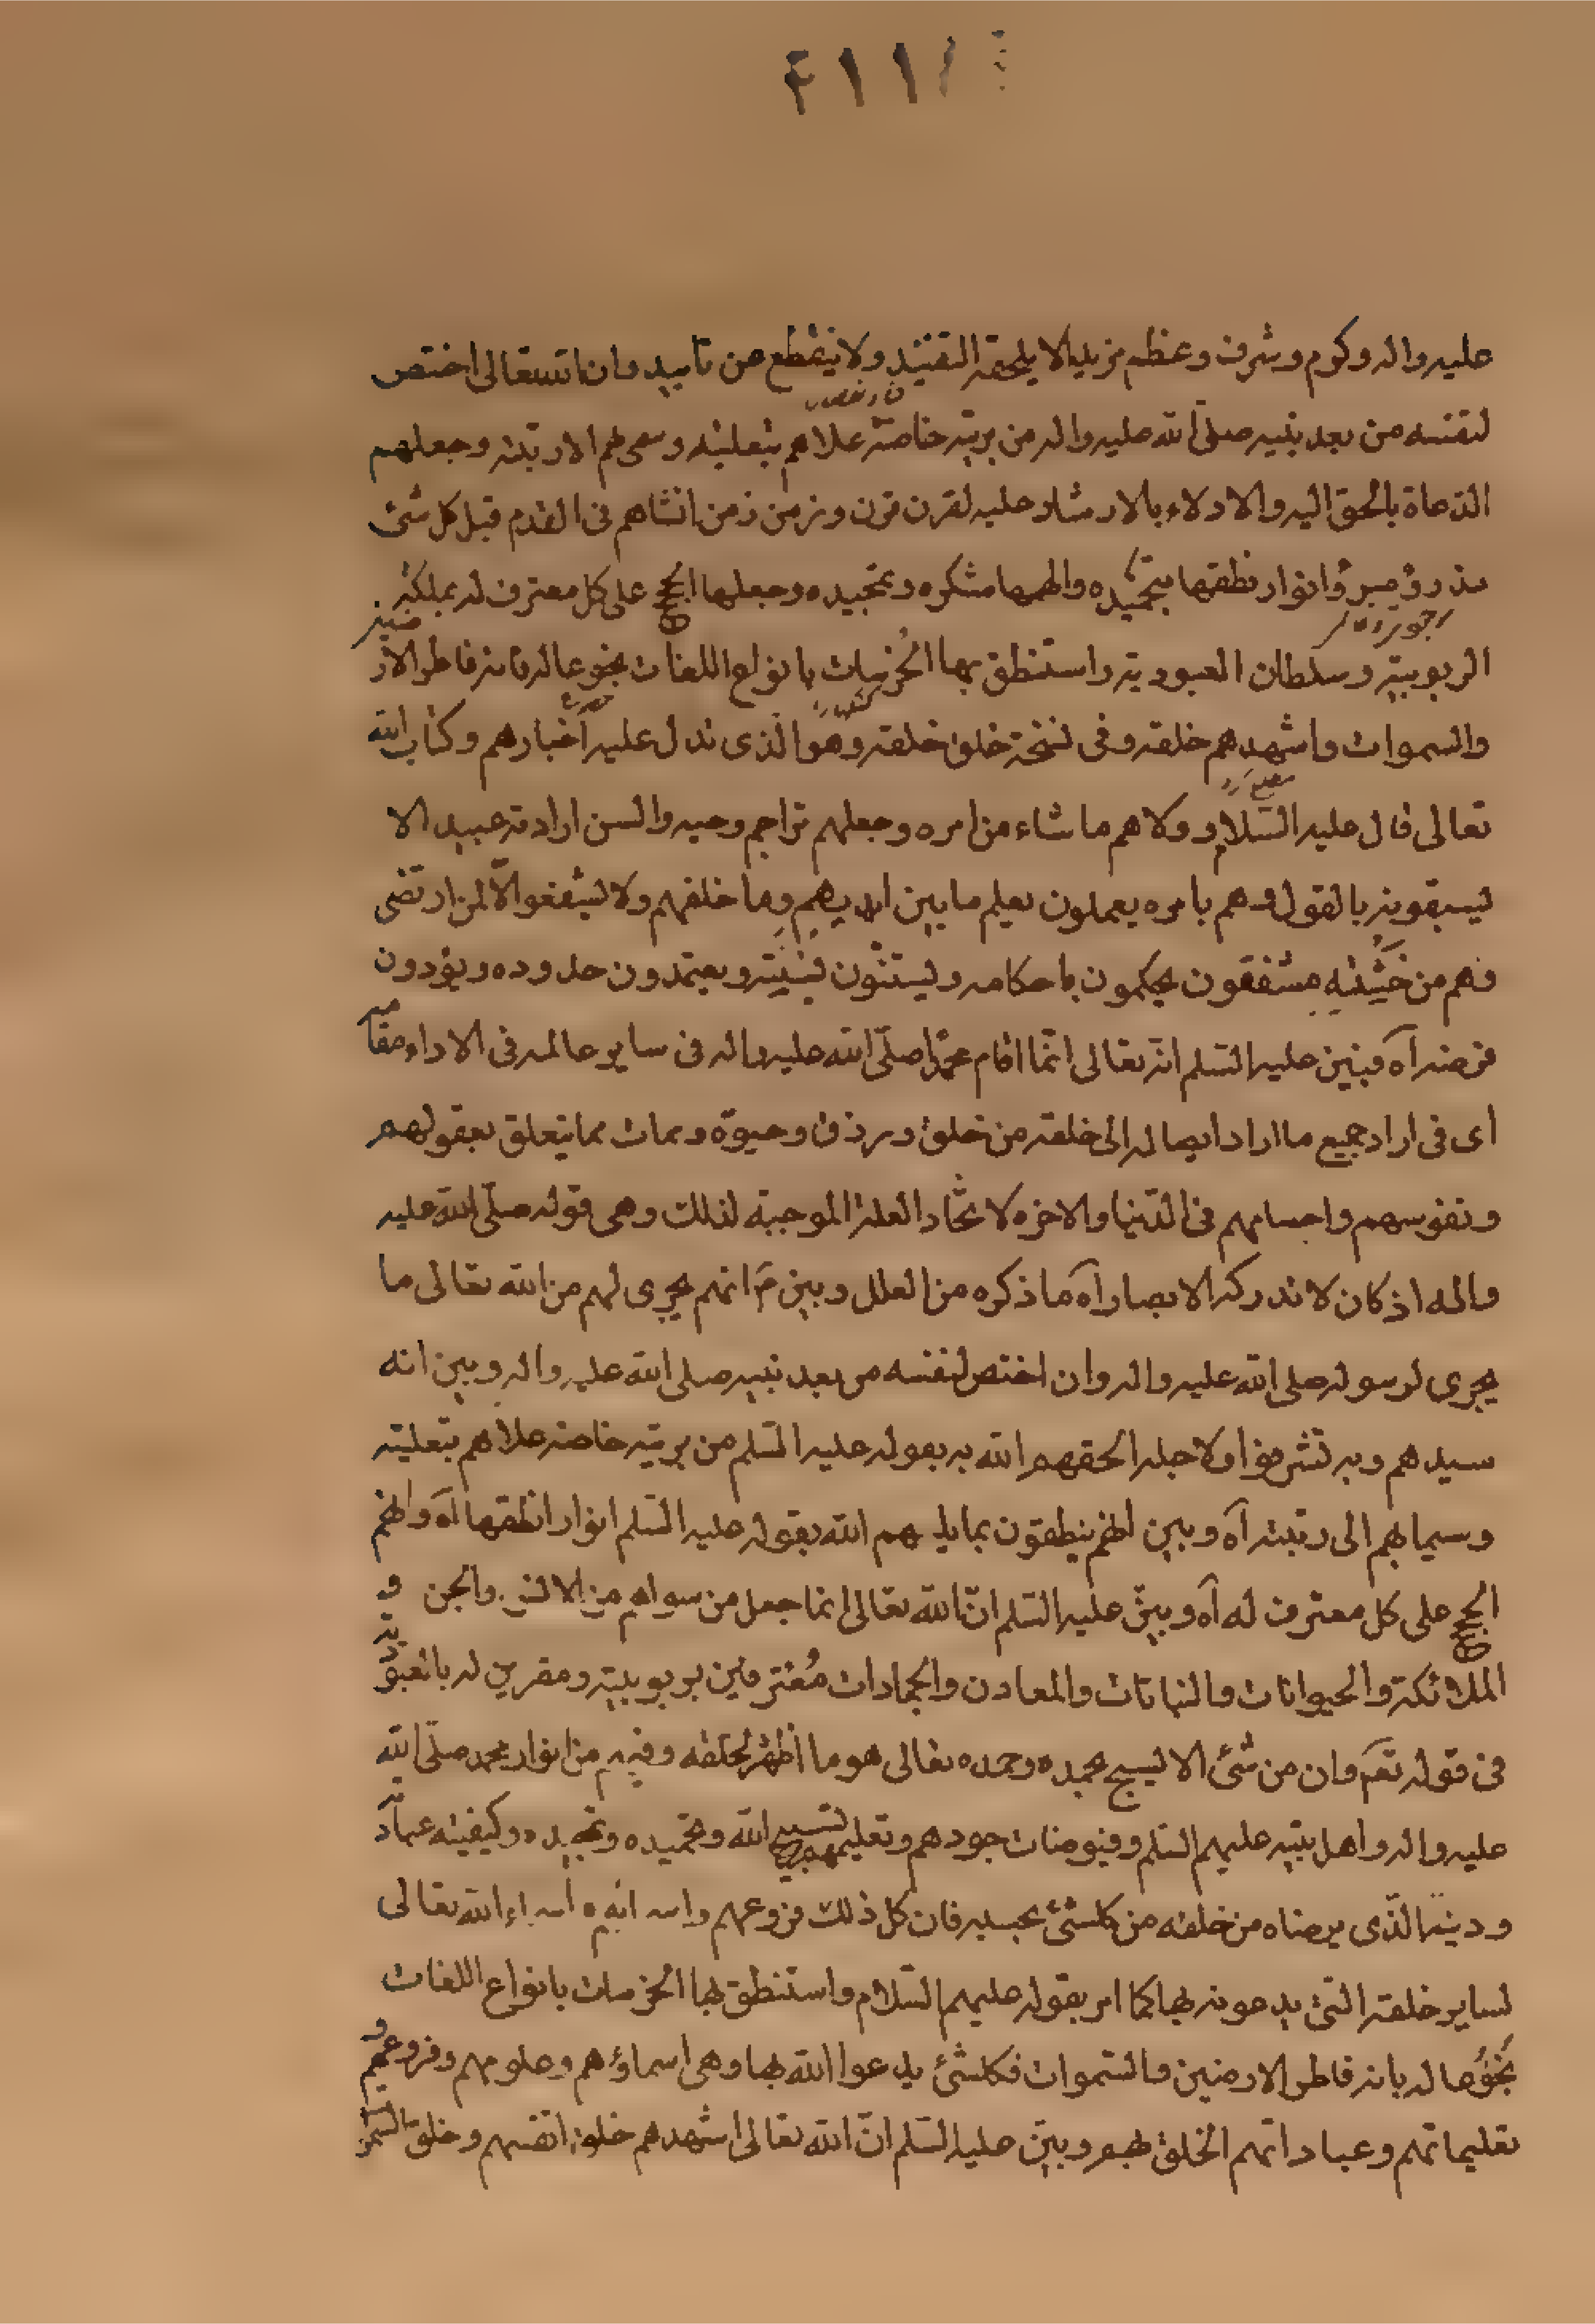 عليه واله وكرم وشرف وعظم مزيدا لا يلحقه التفنيد ولا ينقطع عن تأبيد وان الله تعالى اختص
لنفسه من بعد نبيه صلى الله عليه واله من بريته خاصة علاهم بتعليته وسمى بهم الى رتبته وجعلهم
الدعاة بالحق اليه والادلاء بالارشاد عليه لقرن قرن وزمن زمن انشاهم فى القدم قبل كل شئ
مذروء ومبرؤ انوار انطقها بتحميده والهمها شكره وتمجيده وجعلها الحجج على كل معترف له بملكة
الربوبية وسلطان العبودية واستنطق بها الخرسات بانواع اللغات بخوعا له بانه فاطر الارضين
والسموات واشهدهم خلقه وفى نسخة خلق خلقه وهو الذى تدل عليه اخبارهم وكتاب الله
تعالى قال عليه السلام وولاهم ما شاء من امره وجعلهم تراجم وحيه والسن ارادته عبيدا لا
يسبقونه بالقول وهم بامره يعملون يعلم ما بين ايديهم وما خلفهم ولا يشفعون الا لمن ارتضى
وهم من خشيته مشفقون يحكمون باحكامه ويستنون بسنته ويعتمدون حدوده ويؤدون
فرضه آه فبين عليه السلم انه تعالى انما اقام محمدا صلى الله عليه واله فى ساير عالمه فى الاداء مقامه
اى فى اراد جميع ما اراد ايصاله الى خلقه من خلق ورزق وحيوة وممات مما يتعلق بعقولهم
ونفوسهم واجسامهم فى الدنيا والاخره لاتحاد العلة الموجبة لذلك وهى قوله صلى الله عليه
واله اذ كان لا تدركه الابصار آه ما ذكره من العلل وبين ع انهم يجرى لهم من الله تعالى ما
يجرى لرسوله صلى الله عليه واله وان اختص لنفسه من بعد نبيه صلى الله عليه واله وبين انه
سيدهم وبه تشرفوا ولاجله الحقهم الله به بقوله عليه السلم من بريته خاصة علاهم بتعليته
وسما بهم الى رتبته آه وبين انهم ينطقون بما يلهمهم الله بقوله عليه السلم انوار انطقها آه وانهم
الحجج على كل معترف له آه وبين عليه السلم ان الله تعالى انما جعل من سواهم من الانس والجن و
الملائكة والحيوانات والنباتات والمعادن والجمادات معترفين بربوبيته ومقرين له بالعبودية
فى قوله تعم وان من شئ الا يسبح بحمده وحمده تعالى هو ما اظهر لخلقه وفيهم من انوار محمد صلى الله
عليه واله واهل بيته عليهم السلم وفيوضات جودهم وتعليمهم تسبيح الله وتحميده وتمجيده وكيفيته عبادته
ودينه الذى يرضاه من خلقه من كلشئ بحسبه فان كل ذلك فروعهم واسمائهم اسماء الله تعالى
لساير خلقه التى يدعونه بها كما امر بقوله عليهم السلام واستنطق بها الخرسات بانواع اللغات
بخوعا له بانه فاطر الارضين والسموات فكلشئ يدعوا الله بها وهى اسماؤهم وعلومهم وفروعهم و
تعليماتهم وعباداتهم الخلق بهم وبين عليه السلم ان الله تعالى اشهدهم خلق انفسهم وخلق السموات